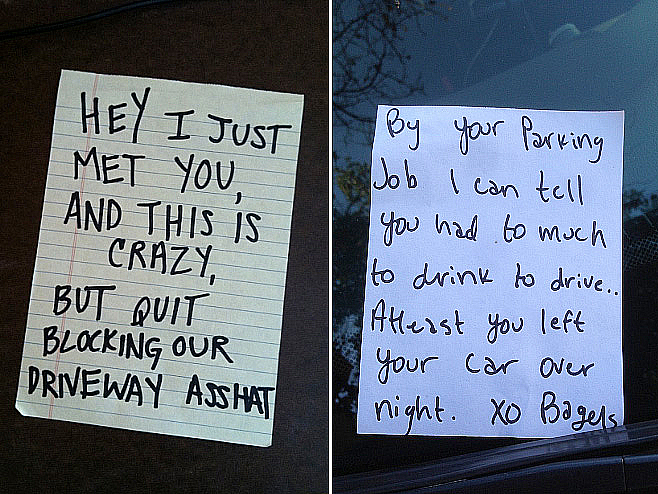 HEY I JUST
MET YOU,
AND THIS IS
CRAZY,
BUT QUIT
BLOCKING OUR
DRIVEWAY ASSHAT
By your Parking
Job I can tell
you had to much
to drink to drive..
Atleast you left
your car over
night. XO Bagels